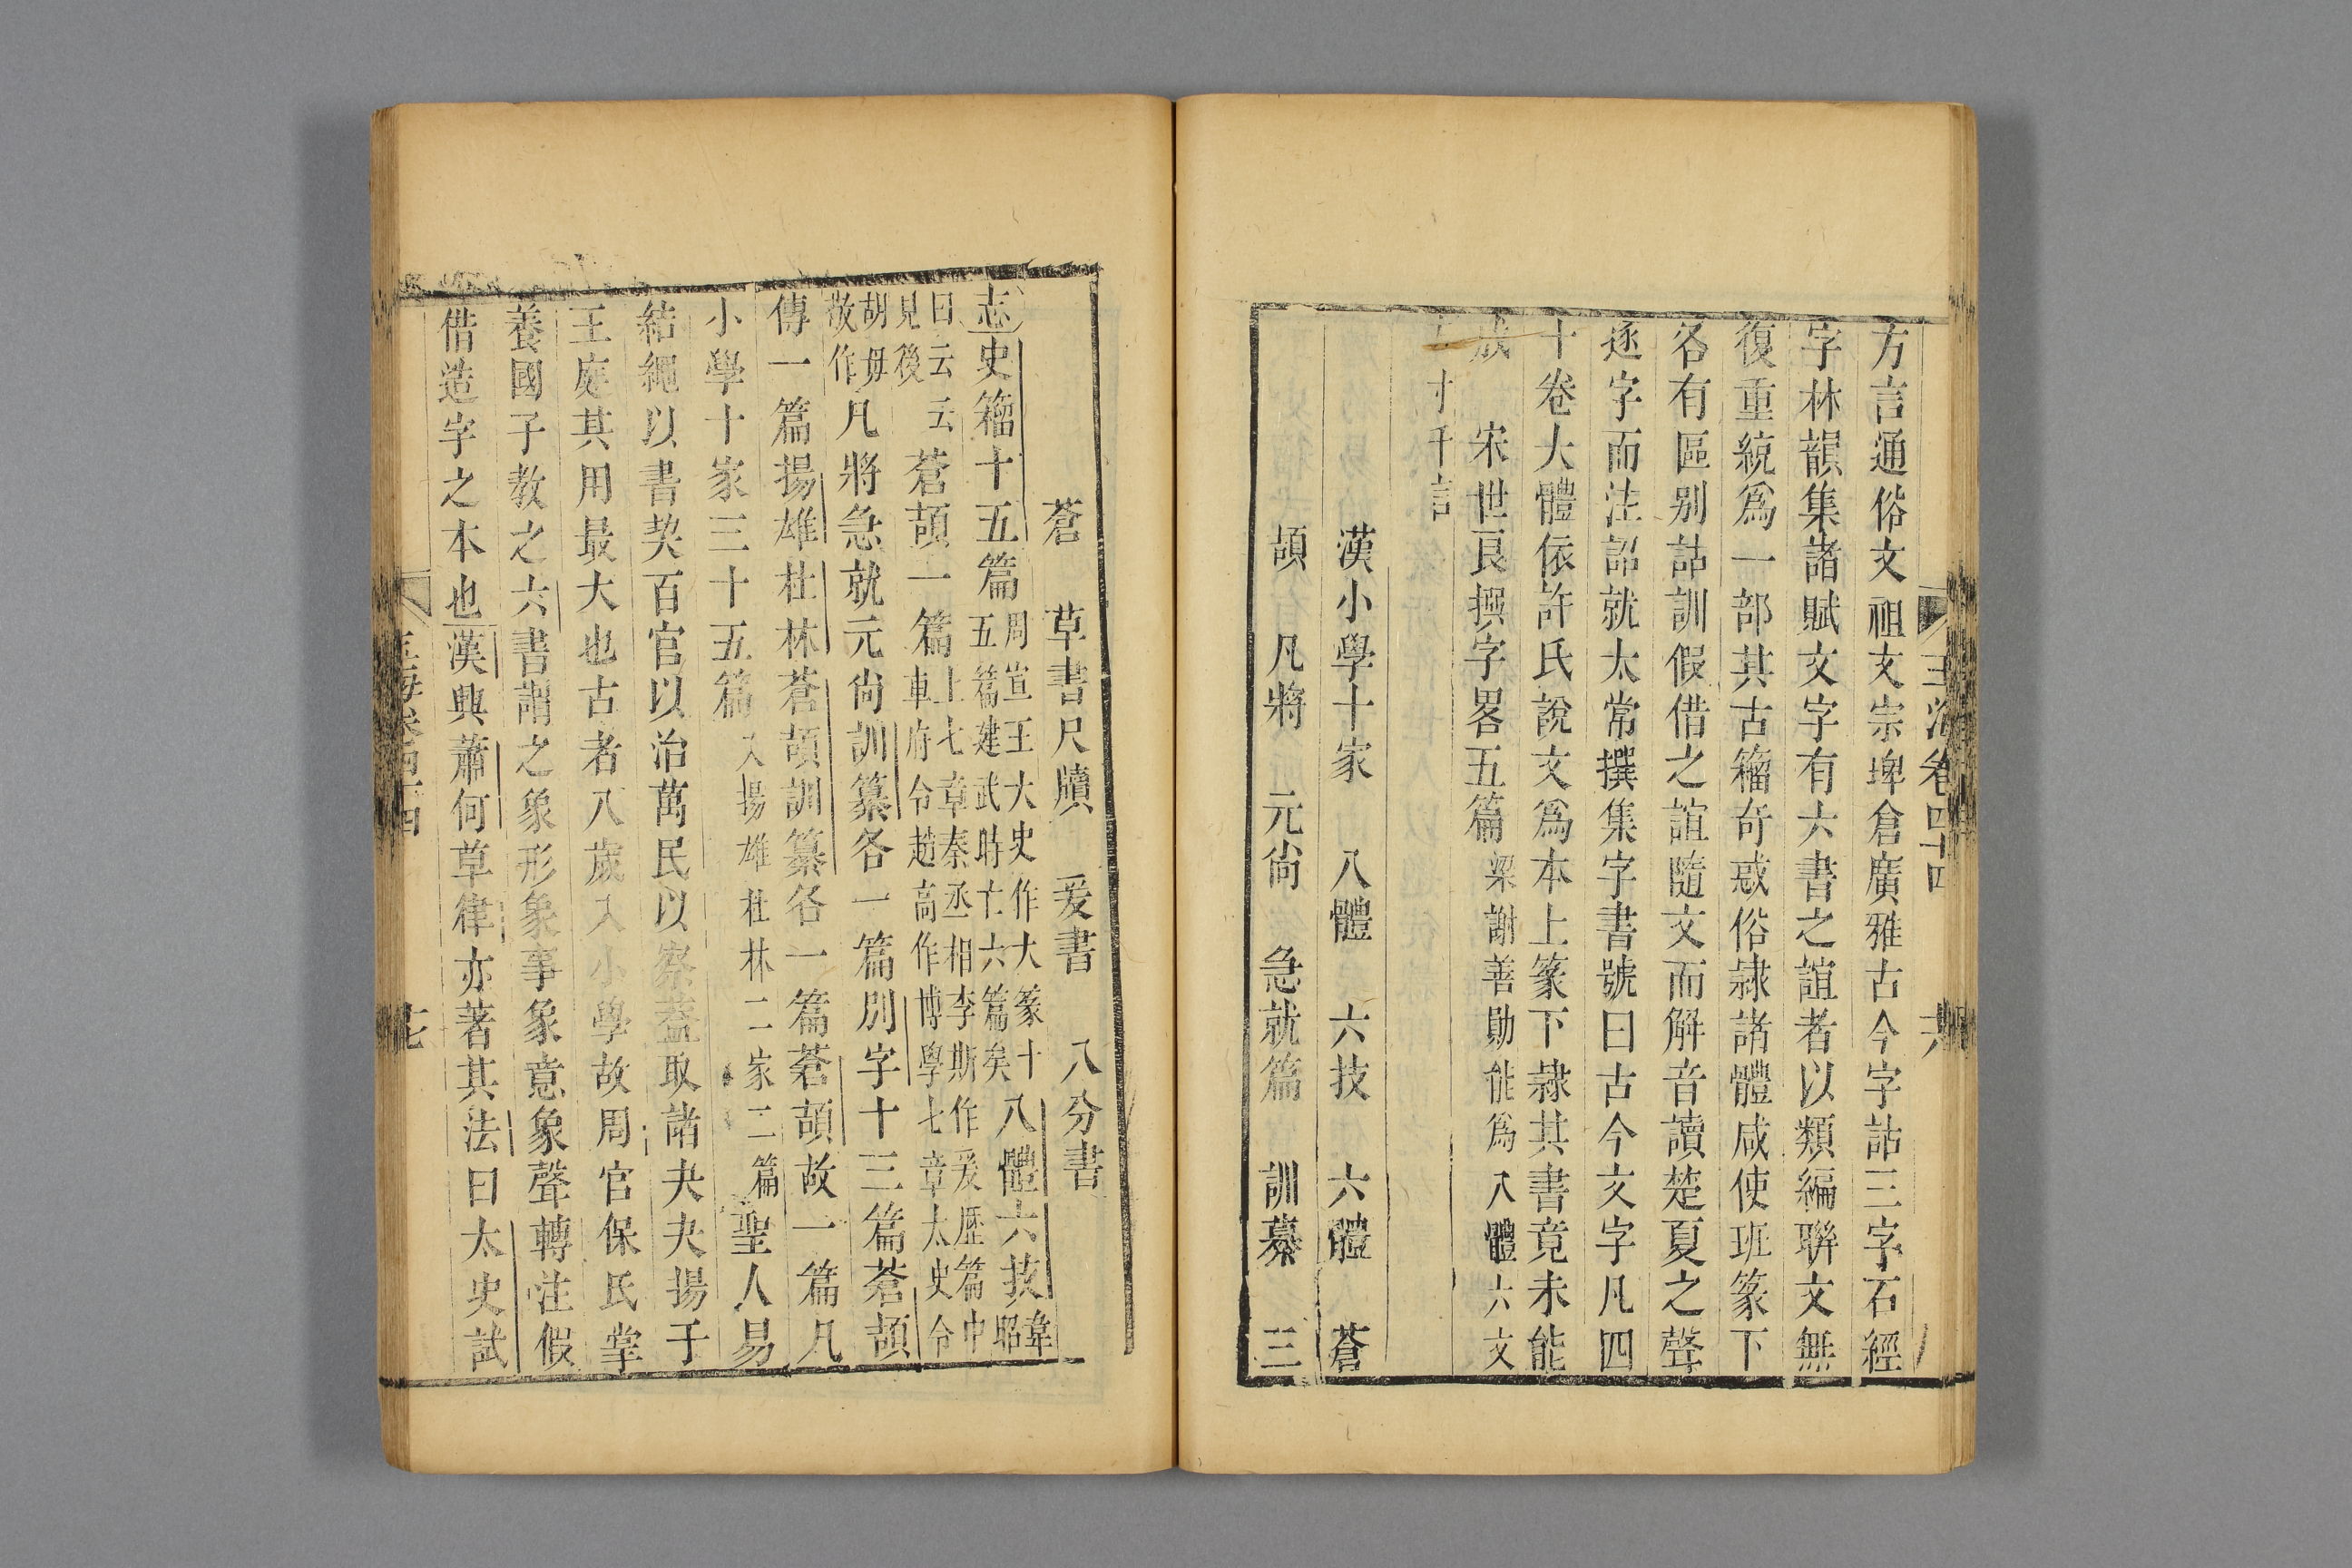 玉海卷四十四 六
方言通俗文祖文宗埤倉廣雅古今字詁三字石經
字林韻集諸賦文字有六書之誼者以類編聯文無
復重統爲一部其古籀奇惑俗隷諸體咸使班篆下
各有區别詁訓假借之誼隨文而解音讀楚夏之聲
逐字而注詔就太常撰集字書號曰古今文字凡四
十卷大體依許氏說文爲本上篆下隷其書竟未能
成 宋世良撰字畧五篇 梁謝善勛能爲八體六文
寸千言
漢小學十家 八體 六技 六體 蒼
頡 凡將 元尙 急就篇 訓纂 三
蒼 草書尺牘 爰書 八分書
志史籀十五篇周宣王大史作大篆十五篇建武時亡六篇矣八體六技韋昭
曰云云見後蒼頡一篇上七章秦丞相李斯作爰歴篇中車府令趙高作博學七章太史令
胡毋敬作凡將急就元尙訓纂各一篇别字十三篇蒼頡
傳一篇揚雄杜林蒼頡訓纂各一篇蒼頡故一篇凡
小學十家三十五篇入揚雄杜林二家二篇聖人易
結繩以書契百官以治萬民以察葢取諸夬夬揚于
王庭其用最大也古者八歲入小學故周官保氏掌
養國子教之六書謂之象形象事象意象聲轉注假
借造字之本也漢興蕭何草律亦著其法曰太史試
玉海卷四十四 七